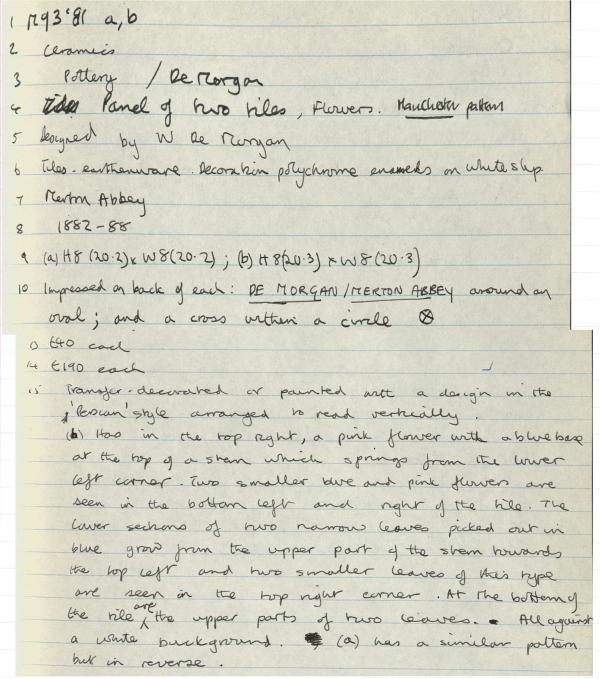 1 M93'81 a,b
2 Ceramics
3 Pottery / De Morgan
4 Panel of two tiles, Flowers. Manchester pattern
5 Designed by W De Morgan
6 Tiles - earthenware. Decoration polychrome enamels on white slip
7 Merton Abbey
8 1882-88
9 (a) H8 (20.2) x W8 (20.2) ; (b) H8 (20.3) x W8 (20.3)
10 Impressed on back of each : DE MORGAN / MERTON ABBEY around an
oval ; and a cross within a circle ⊗
£40 each
14 £190 each
15 Transfer-decorated or painted with a design in the
'Persian' style arranged to read vertically.
(b) Has in the top right, a pink flower with a blue base
at the top of a stem which springs from the lower
left corner. Two smaller blue and pink flowers are
seen in the bottom left and right of the tile. The
lower sections of two narrow leaves picked out in
blue grow from the upper part of the stem towards
the top left and two smaller leaves of this type
are seen in the top right corner. At the bottom of
the tile are the upper parts of two leaves. All against
a white background. (a) has a similar pattern
but in reverse.